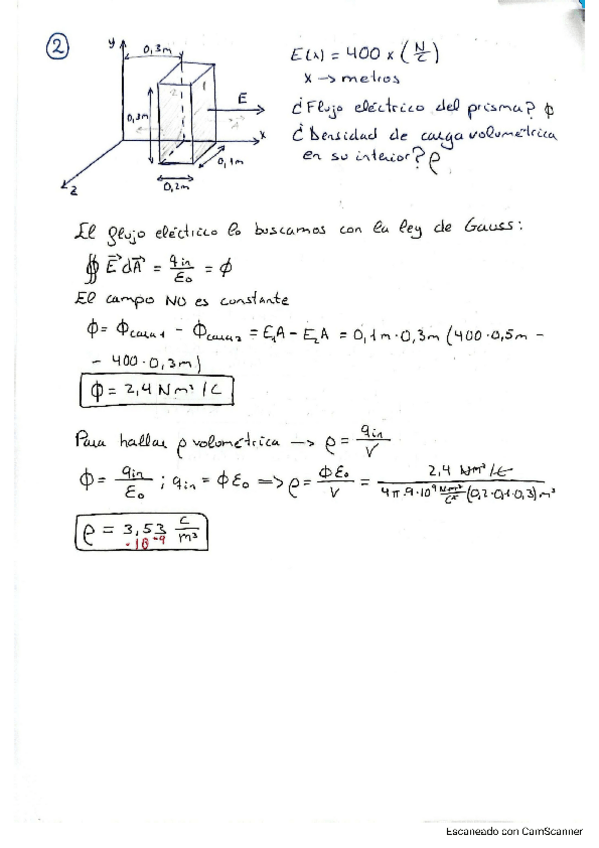 2
y
0,3m
E(x) = 400 x (N/C)
x → metros
2
1
E
0,3m
x
0,1m
0,2m
z
¿Flujo eléctrico del prisma? ϕ
¿Densidad de carga volumétrica
en su interior? ρ
El flujo eléctrico lo buscamos con la ley de Gauss:
∯ E⃗ dA⃗ = qin/ε₀ = ϕ
El campo NO es constante
ϕ = ϕcara 1 - ϕcara 2 = E₁A - E₂A = 0,1m · 0,3m (400 · 0,5m -
- 400 · 0,3m)
ϕ = 2,4 Nm²/C
Para hallar ρ volumétrica → ρ = qin/V
ϕ = qin/ε₀ ; qin = ϕε₀ → ρ = ϕε₀/V = 2,4 Nm²/C / 4π·9·10⁹ Nm²/C² (0,2·0,1·0,3) m³
ρ = 3,53 C/m³
·10⁻⁹
Escaneado con CamScanner